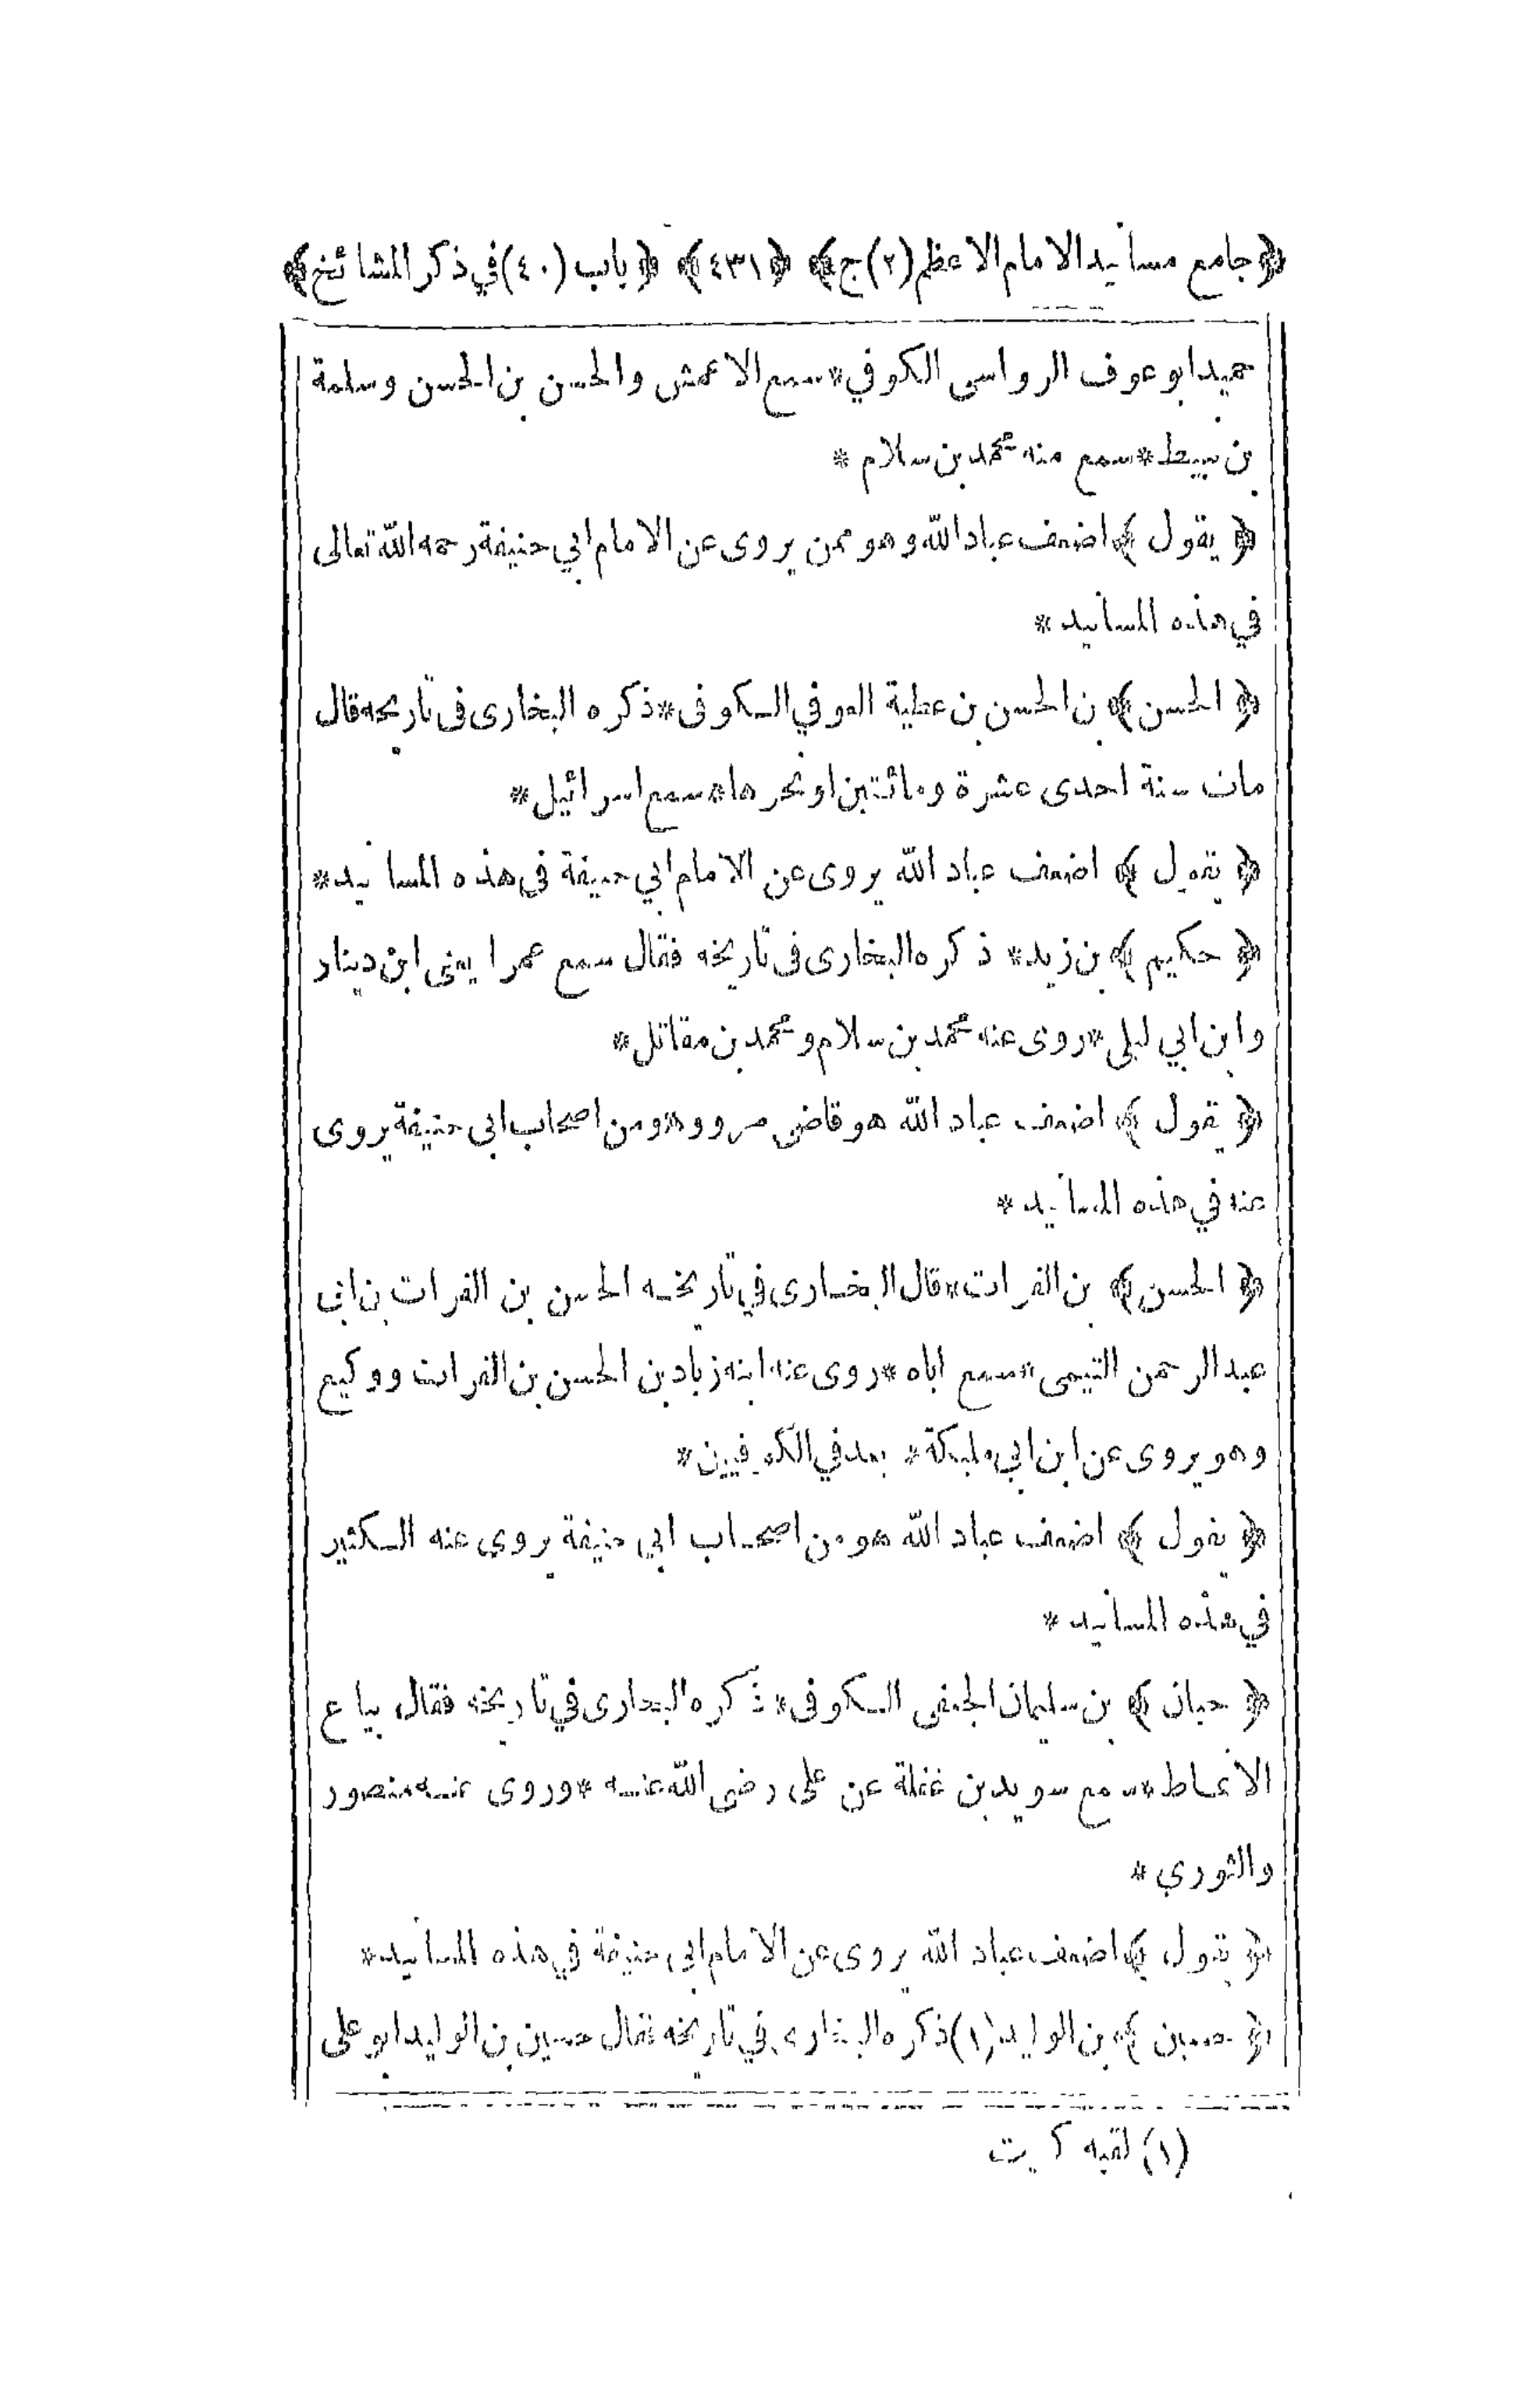 ﴿جامع مسانيد الامام الاعظم (٢) ج﴾ ﴿٤٣١﴾ ﴿باب (٤٠) في ذكر المشائخ﴾
حميد ابو عوف الرواسى الكوفي * سمع الاعمش والحسن بن الحسن وسلمة
بن نبيط * سمع منه محمد بن سلام *
﴿يقول﴾ اضعف عباد الله وهو ممن يروى عن الامام ابي حنيفة رحمه الله تعالى
في هذه المسانيد *
﴿الحسن﴾ بن الحسن بن عطية العوفي الكوفى * ذكره البخارى فى تاريخه قال
مات سنة احدى عشرة ومائتين او نحوها * سمع اسرائيل *
﴿يقول﴾ اضعف عباد الله يروى عن الامام ابي حنيفة فى هذه المسانيد *
﴿حكيم﴾ بن زيد * ذكره البخارى فى تاريخه فقال سمع عمرا يعنى ابن دينار
وابن ابي ليلى * روى عنه محمد بن سلام ومحمد بن مقاتل *
﴿يقول﴾ اضعف عباد الله هو قاضى مرو وهو من اصحاب ابى حنيفة يروى
عنه في هذه المسانيد *
﴿الحسن﴾ بن الفرات * قال البخارى في تاريخه الحسن بن الفرات بن ابى
عبد الرحمن التيمى * سمع اباه * روى عنه ابنه زياد بن الحسن بن الفرات ووكيع
وهو يروى عن ابن ابي مليكة * يعد في الكوفيين *
﴿يقول﴾ اضعف عباد الله هو من اصحاب ابي حنيفة يروى عنه الكثير
في هذه المسانيد *
﴿حبان﴾ بن سليمان الجعفى الكوفى * ذكره البخارى في تاريخه فقال بياع
الانماط * سمع سويد بن غفلة عن على رضى الله عنه * وروى عنه منصور
والثوري *
﴿يقول﴾ اضعف عباد الله يروى عن الامام ابى حنيفة في هذه المسانيد *
﴿حسين﴾ بن الوليد (١) ذكره البخارى في تاريخه فقال حسين بن الوليد ابو على
(١) لقبه